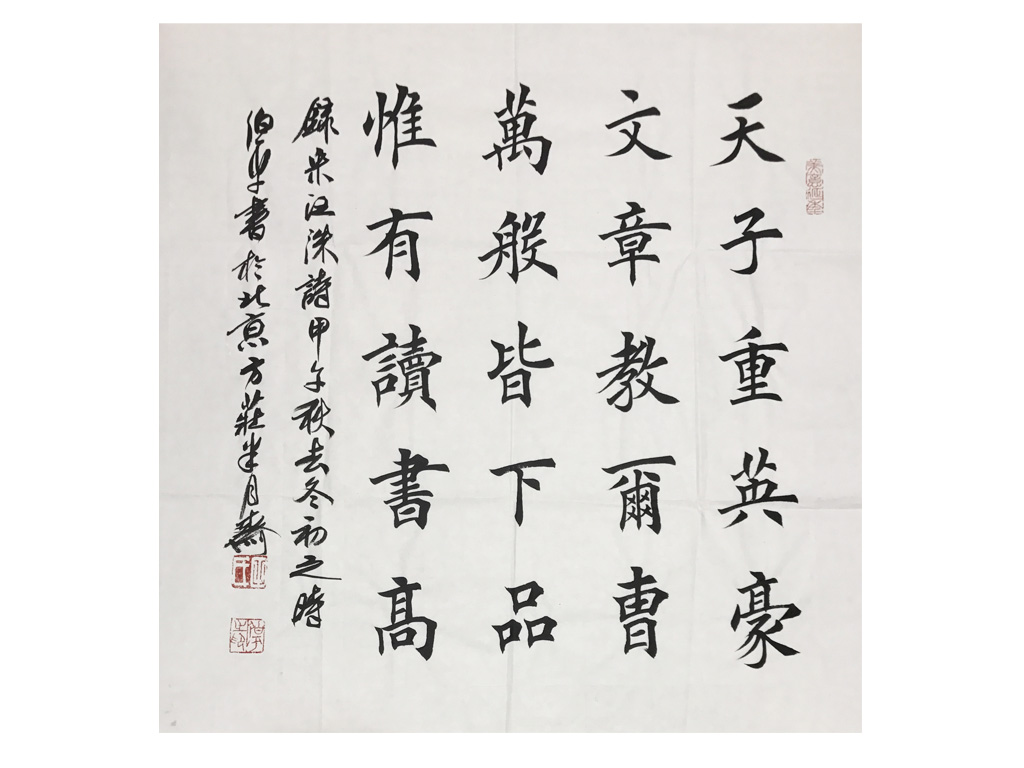 天子重英豪
文章教爾曹
萬般皆下品
惟有讀書高
錄宋汪洙詩甲午秋去冬初之時
伯平書於北京方莊半月齋